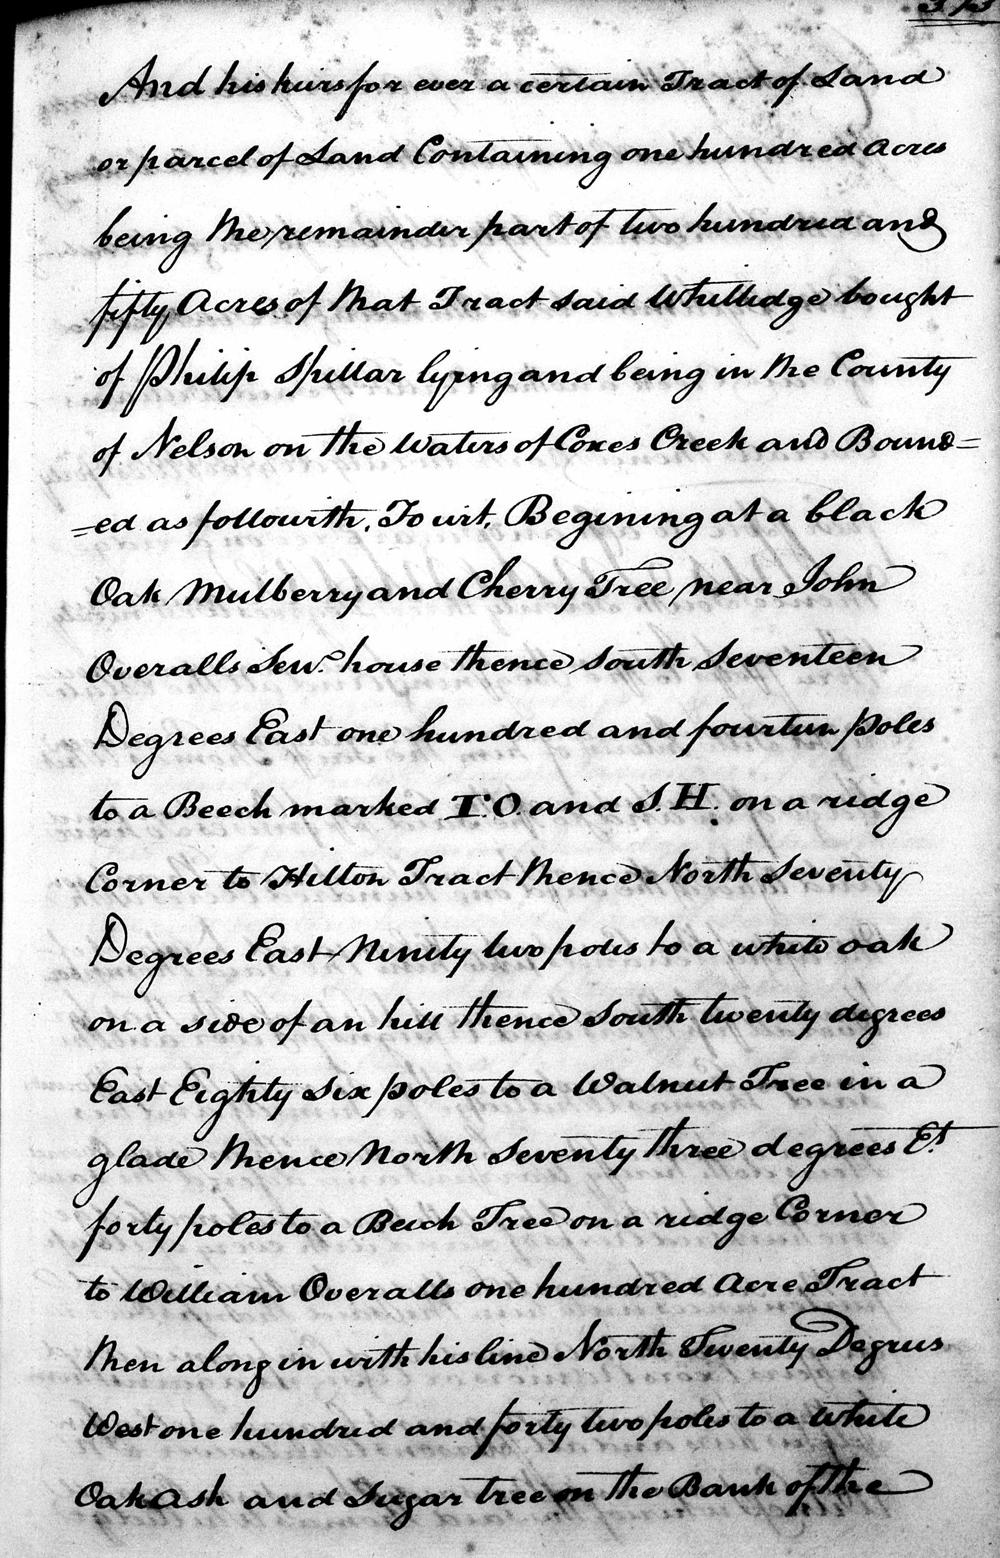 And his heirs for ever a certain Tract of Land
or parcel of Land Containing one hundred acres
being the remainder part of two hundred and
fifty Acres of that Tract said Whillidge bought
of Philip Spillar lying and being in the County
of Nelson on the waters of Coxes Creek and Bound=
=ed as followith, To wit, Begining at a black
Oak Mulberry and Cherry Tree near John
Overalls Senr. house thence south seventeen
Degrees East one hundred and fourteen poles
to a Beech marked I.O. and S.H. on a ridge
Corner to Hilton Tract thence North seventy
Degrees East Ninity two poles to a white oak
on a side of an hill thence south twenty degrees
East Eighty six poles to a Walnut Tree in a
glade thence North seventy three degrees Et
forty poles to a Beech Tree on a ridge Corner
to William Overalls one hundred acre Tract
then along in with his line North Twenty Degrees
West one hundred and forty two poles to a white
Oak Ash and Sugar tree on the Bank of the